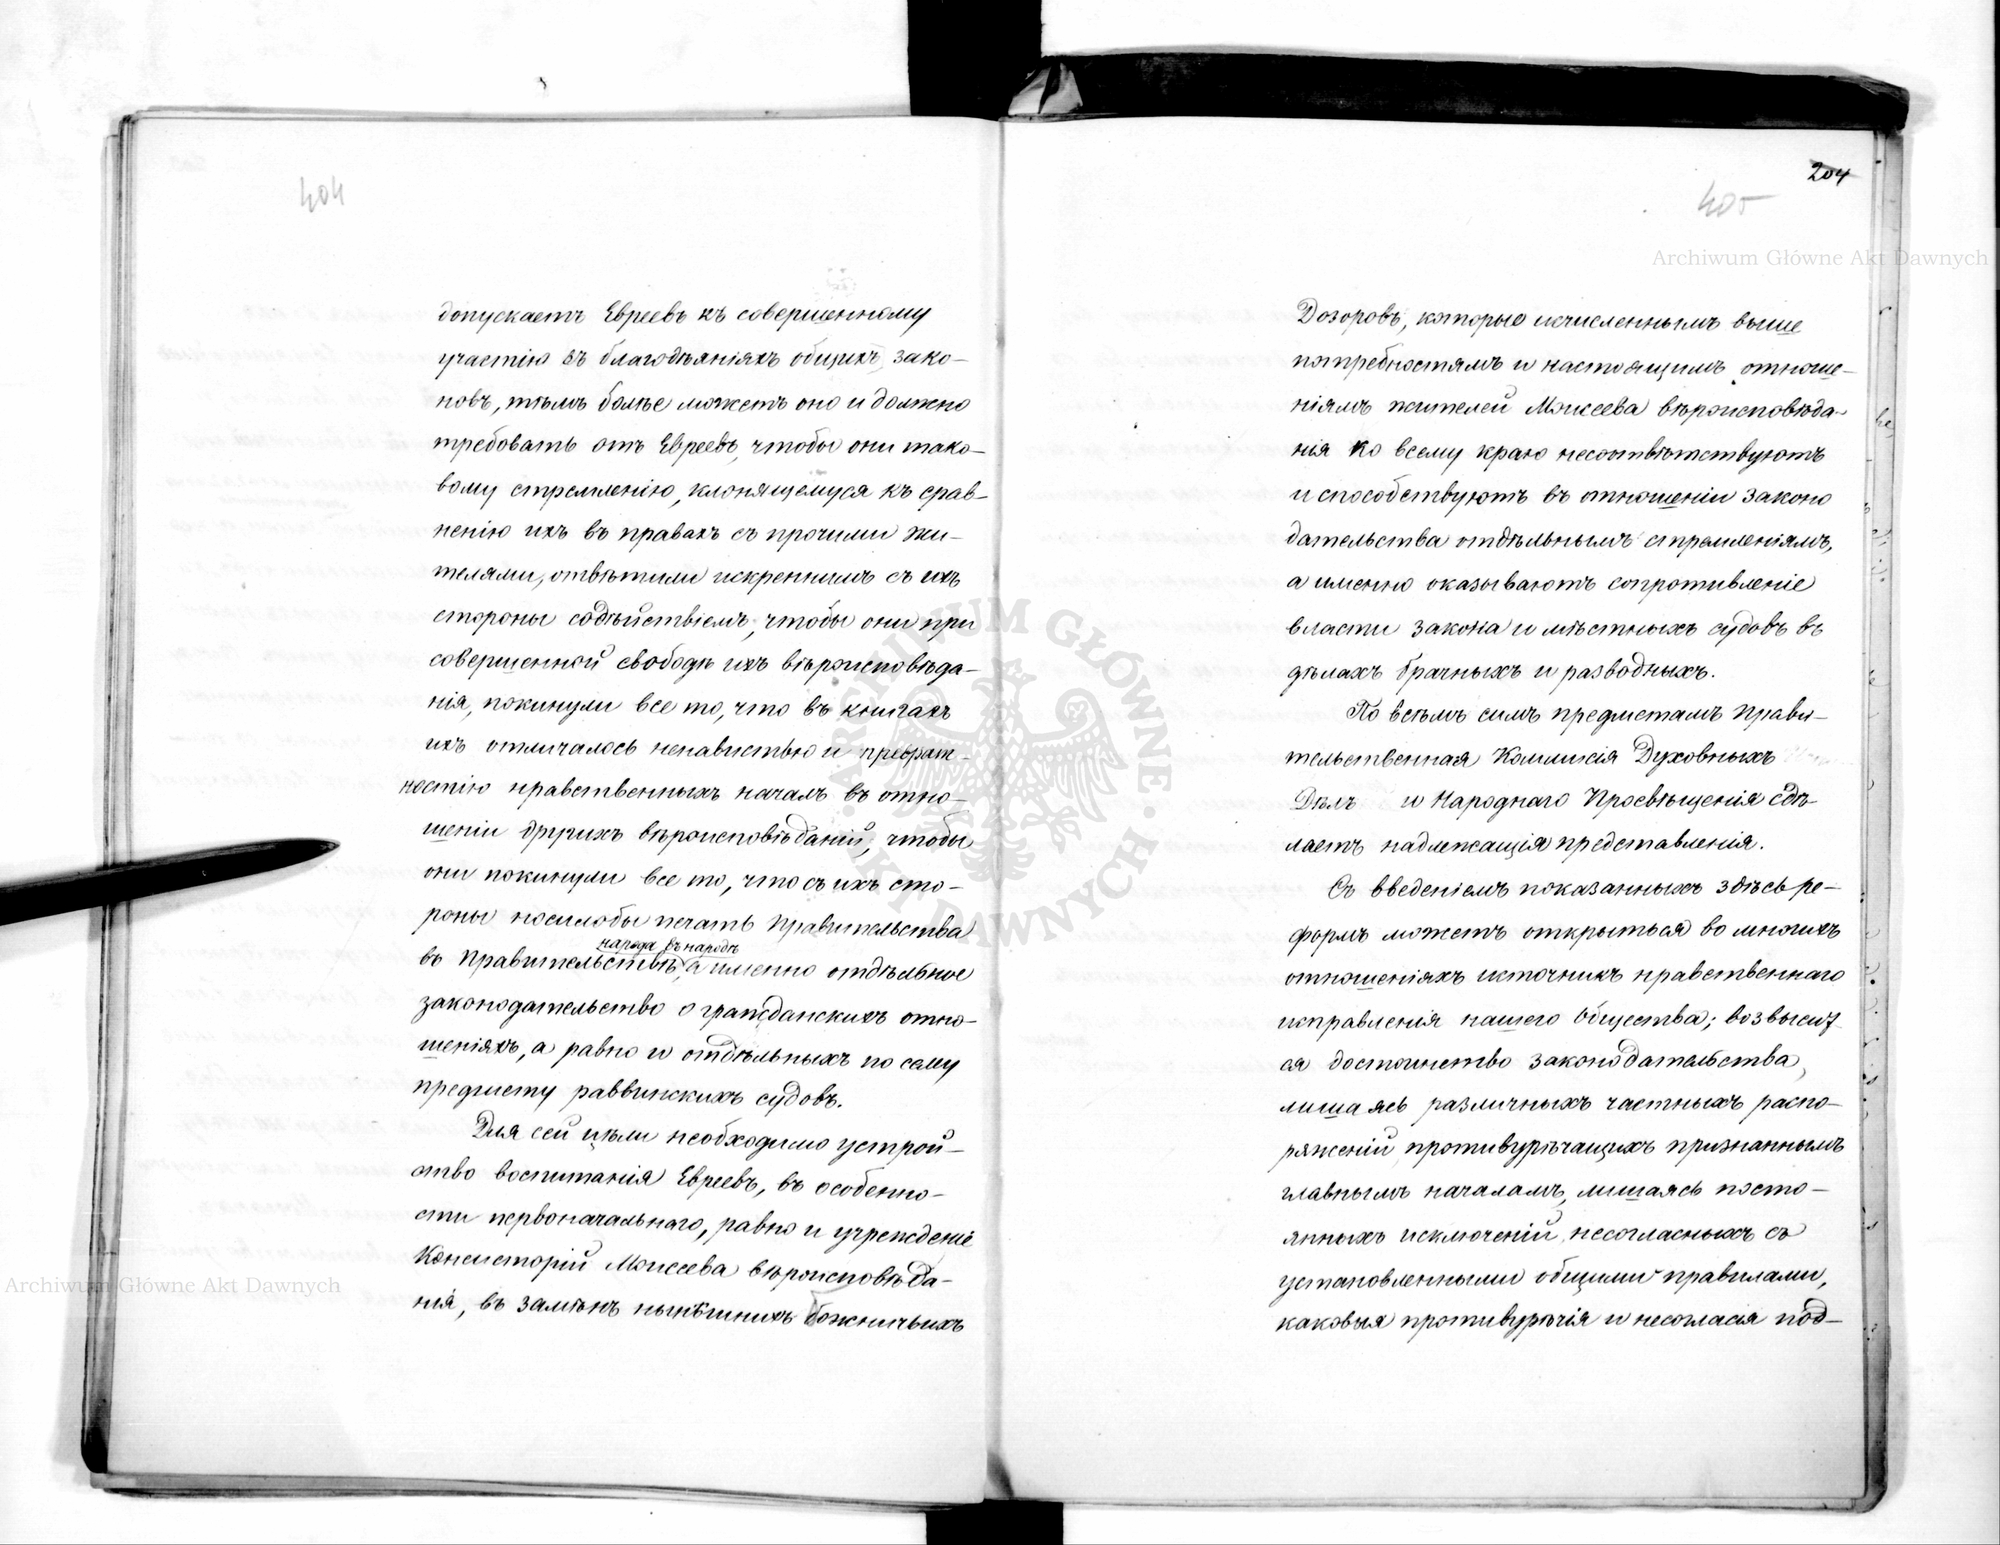 404
допускаетъ Евреевъ къ совершенному
участію въ благодѣяніяхъ общихъ зако-
новъ, тѣмъ болѣе можетъ оно и должно
требовать отъ Евреевъ, чтобы они тако-
вому стремленію, клонящемуся къ срав-
ненію ихъ въ правахъ съ прочими жи-
телями, отвѣтили искреннимъ съ ихъ
стороны содѣйствіемъ, чтобы они при
совершенной свободѣ ихъ вѣроисповѣда-
нія, покинули все то, что въ книгахъ
ихъ отличалось ненавистью и преврат-
ностію нравственныхъ началъ въ отно-
шеніи другихъ вѣроисповѣданій, чтобы
они покинули все то, что съ ихъ сто-
роны носилобы печать Правительства
народа въ народѣ
въ Правительствѣ, а именно отдѣльное
законодательство о гражданскихъ отно-
шеніяхъ, а равно и отдѣльныхъ по сему
предмету раввинскихъ судовъ.
Для сей цѣли необходимо устрой-
ство воспитанія Евреевъ, въ особенно-
сти первоначальнаго, равно и учрежденіе
Консисторій Моисеева вѣроисповѣда-
нія, въ замѣнъ нынѣшнихъ Божничьихъ
204
405
Дозоровъ, которые исчисленнымъ выше
потребностямъ и настоящимъ отноше-
ніямъ жителей Моисеева вѣроисповѣда-
нія ко всему краю несоотвѣтствуютъ
и способствуютъ въ отношеніи законо
дательства отдѣльнымъ стремленіямъ,
а именно оказываютъ сопротивленіе
власти закона и мѣстныхъ судовъ въ
дѣлахъ брачныхъ и разводныхъ.
По всѣмъ симъ предметамъ Прави-
тельственная Коммисія Духовныхъ
Дѣлъ и Народнаго Просвѣщенія сдѣ-
лаетъ надлежащія представленія.
Съ введеніемъ показанныхъ здѣсь ре-
формъ можетъ открыться во многихъ
отношеніяхъ источникъ нравственнаго
исправленія нашего Общества; возвысит
ся достоинство законодательства,
лишаясь различныхъ частныхъ распо-
ряженій противурѣчащихъ признаннымъ
главнымъ началамъ, лишаясь посто-
янныхъ исключеній несогласныхъ съ
установленными общими правилами,
каковыя противурѣчія и несогласія под-
Archiwum Główne Akt Dawnych
Archiwum Główne Akt Dawnych
ARCHIWUM GŁÓWNE AKT DAWNYCH